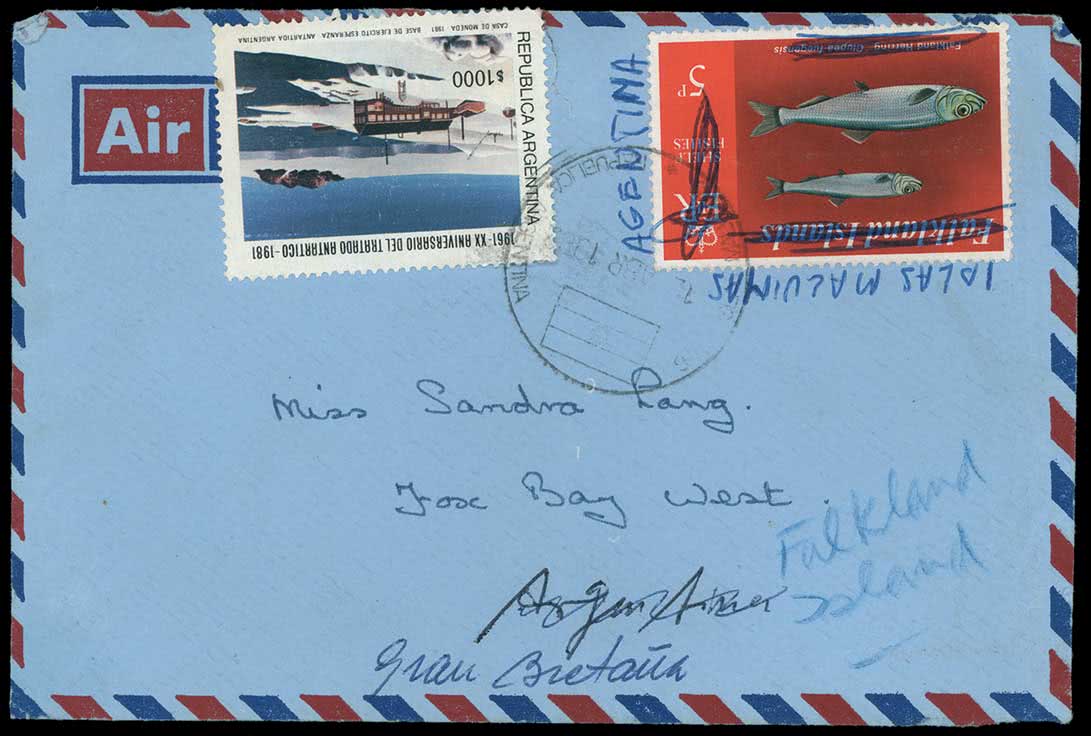 Air
REPUBLICA ARGENTINA
1961 - XX ANIVERSARIO DEL TRATADO ANTARTICO - 1981
$1000
BASE DE EJERCITO ESPERANZA ANTARTIDA ARGENTINA
CASA DE MONEDA 1981
AGENTINA
Falkland Islands
ER
SHELF
FISHES
5p
Falkland Herring Clupea fuegensis
ISLAS MALVINAS
REPUBLICA ARGENTINA
ABR
Miss Sandra Lang.
Fox Bay West.
Falkland
Island
Argentina
Gran Bretaña